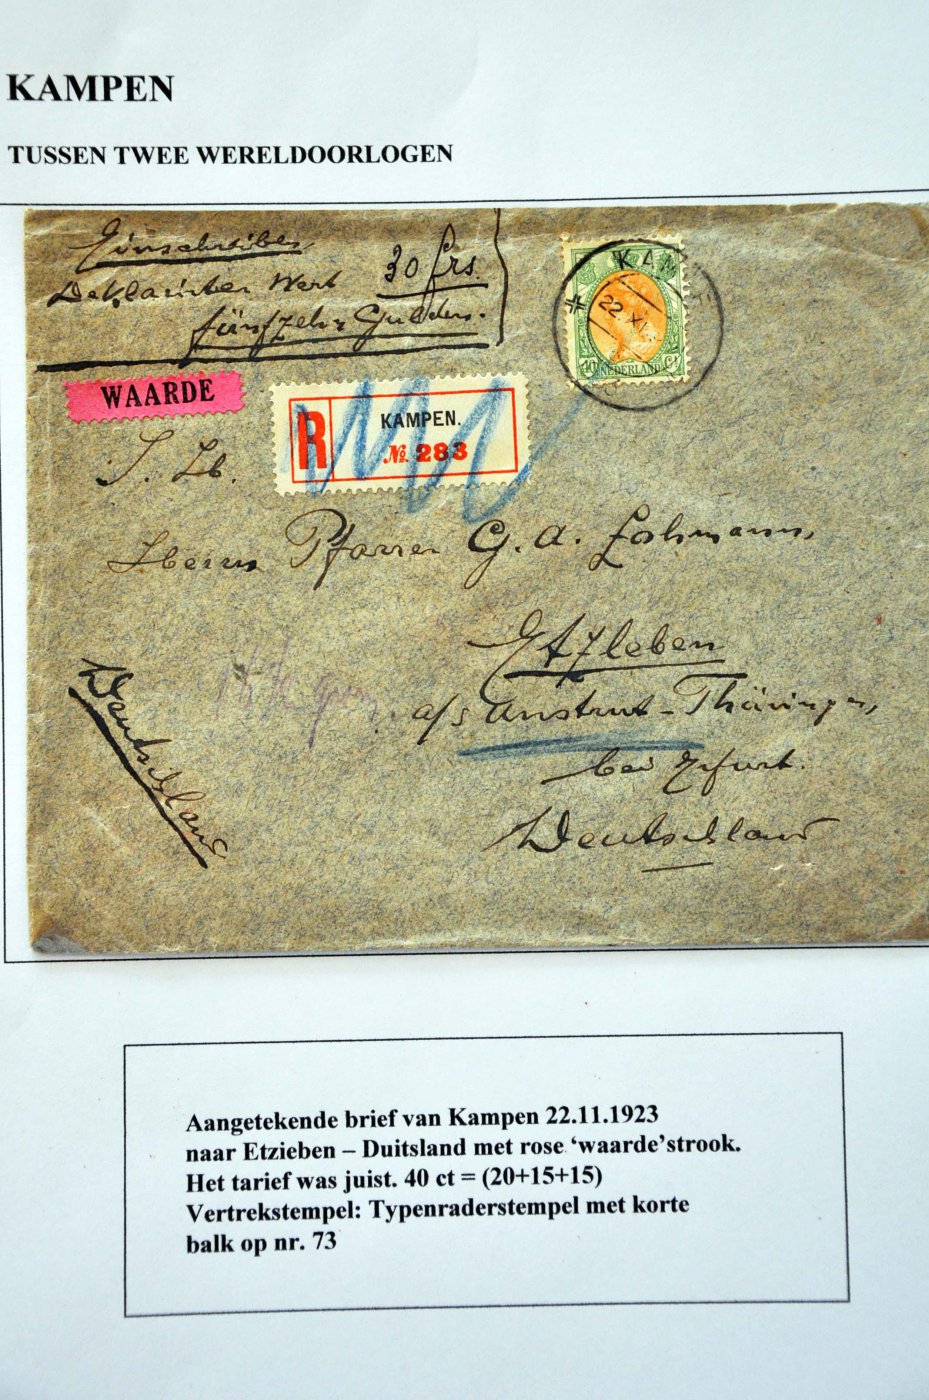 KAMPEN
TUSSEN TWEE WERELDOORLOGEN
Einschreiben
Deklarirter Wert 30 frs.
fünfzehn Gulden.
KAMPEN
22 XI
40 NEDERLAND Ct
WAARDE
R KAMPEN.
№ 283
S. Hb.
Herrn Pfarrer G. A.
Etzleben
a/s Unstrut - Thüringen,
bei Erfurt.
Deutschland
Deutschland
Aangetekende brief van Kampen 22.11.1923
naar Etzieben – Duitsland met rose ‘waarde’strook.
Het tarief was juist. 40 ct = (20+15+15)
Vertrekstempel: Typenraderstempel met korte
balk op nr. 73